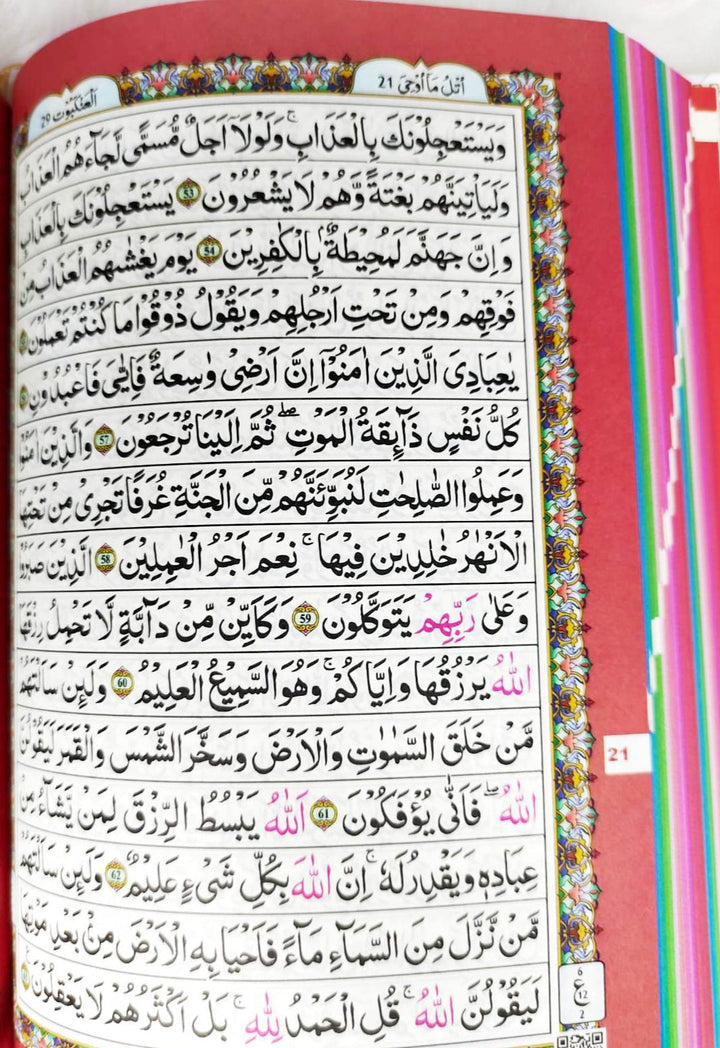 العنكبوت 29
اتل ما اوحی 21
وَيَسْتَعْجِلُوْنَكَ بِالْعَذَابِ ۚ وَلَوْلَاۤ اَجَلٌ مُّسَمًّى لَّجَآءَهُمُ الْعَذَابُ
وَلَيَاْتِيَنَّهُمْ بَغْتَةً وَّهُمْ لَا يَشْعُرُوْنَ 53 يَسْتَعْجِلُوْنَكَ بِالْعَذَابِ
وَاِنَّ جَهَنَّمَ لَمُحِيْطَةٌۢ بِالْكٰفِرِيْنَ 54 يَوْمَ يَغْشٰىهُمُ الْعَذَابُ مِنْ
فَوْقِهِمْ وَمِنْ تَحْتِ اَرْجُلِهِمْ وَيَقُوْلُ ذُوْقُوْا مَا كُنْتُمْ تَعْمَلُوْنَ
يٰعِبَادِىَ الَّذِيْنَ اٰمَنُوْۤا اِنَّ اَرْضِىْ وَاسِعَةٌ فَاِيَّاىَ فَاعْبُدُوْنِ
كُلُّ نَفْسٍ ذَآئِقَةُ الْمَوْتِ ۖ ثُمَّ اِلَيْنَا تُرْجَعُوْنَ 57 وَالَّذِيْنَ اٰمَنُوْا
وَعَمِلُوا الصّٰلِحٰتِ لَنُبَوِّئَنَّهُمْ مِّنَ الْجَنَّةِ غُرَفًا تَجْرِىْ مِنْ تَحْتِهَا
الْاَنْهٰرُ خٰلِدِيْنَ فِيْهَا ۚ نِعْمَ اَجْرُ الْعٰمِلِيْنَ 58 الَّذِيْنَ صَبَرُوْا
وَعَلٰى رَبِّهِمْ يَتَوَكَّلُوْنَ 59 وَكَاَيِّنْ مِّنْ دَآبَّةٍ لَّا تَحْمِلُ رِزْقَهَا
اللّٰهُ يَرْزُقُهَا وَاِيَّاكُمْ ۚ وَهُوَ السَّمِيْعُ الْعَلِيْمُ 60 وَلَئِنْ سَاَلْتَهُمْ
مَّنْ خَلَقَ السَّمٰوٰتِ وَالْاَرْضَ وَسَخَّرَ الشَّمْسَ وَالْقَمَرَ لَيَقُوْلُنَّ
اللّٰهُ ۖ فَاَنّٰى يُؤْفَكُوْنَ 61 اَللّٰهُ يَبْسُطُ الرِّزْقَ لِمَنْ يَّشَآءُ مِنْ
عِبَادِهٖ وَيَقْدِرُ لَهٗ ۚ اِنَّ اللّٰهَ بِكُلِّ شَىْءٍ عَلِيْمٌ 62 وَلَئِنْ سَاَلْتَهُمْ
مَّنْ نَّزَّلَ مِنَ السَّمَآءِ مَآءً فَاَحْيَا بِهِ الْاَرْضَ مِنْۢ بَعْدِ مَوْتِهَا
لَيَقُوْلُنَّ اللّٰهُ ۚ قُلِ الْحَمْدُ لِلّٰهِ ۚ بَلْ اَكْثَرُهُمْ لَا يَعْقِلُوْنَ
21
6
ع
12
2